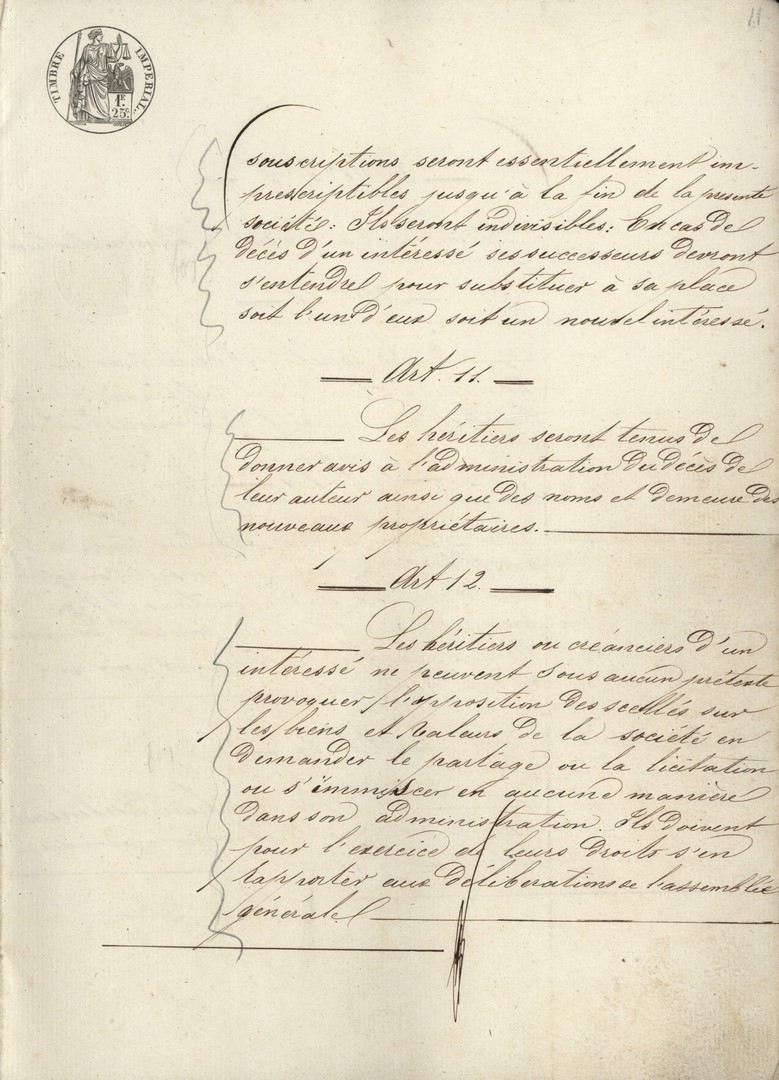 11
TIMBRE IMPERIAL.
1F.
25c.
souscriptions seront essentiellement im-
prescriptibles jusqu'à la fin de la présente
société: Ils seront indivisibles: En cas de
décès d'un intéressé ses successeurs devront
s'entendre pour substituer à sa place
soit l'un d'eux soit un nouvel intéressé.
Art. 11.
Les héritiers seront tenus de
donner avis à l'administration du décès de
leur auteur ainsi que des noms et demeure des
nouveaux propriétaires.
Art 12.
Les héritiers ou créanciers d'un
intéressé ne peuvent sous aucun prétexte
provoquer l'apposition des scellés sur
les biens et valeurs de la société en
demander le partage ou la licitation
ou s'immiscer en aucune manière
dans son administration. Ils doivent
pour l'exercice de leurs droits s'en
rapporter aux délibérations de l'assemblée
générale